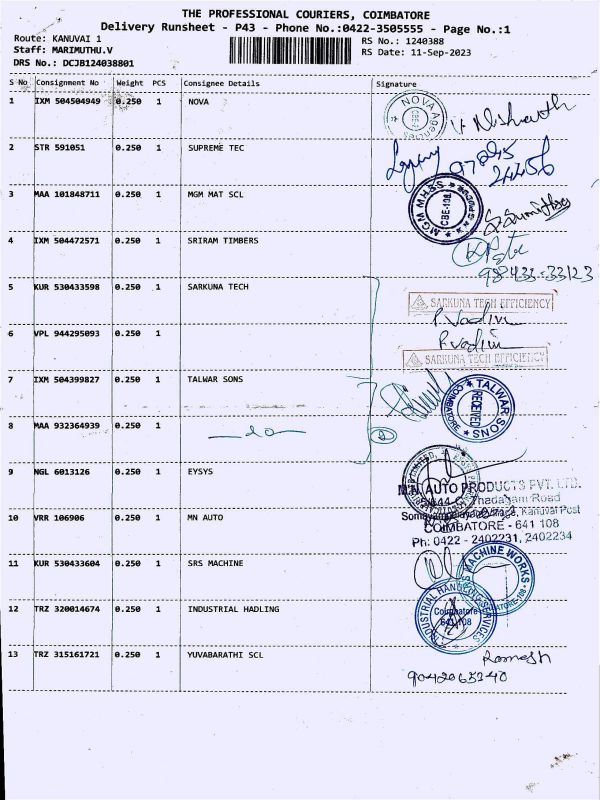 THE PROFESSIONAL COURIERS, COIMBATORE
Delivery Runsheet - P43 - Phone No.:0422-3505555 - Page No.:1
Route: KANUVAI 1
RS No.: 1240388
Staff: MARIMUTHU.V
RS Date: 11-Sep-2023
DRS No.: DCJB124038801
S No Consignment No Weight PCS Consignee Details Signature
1 IXM 504504949 0.250 1 NOVA
NOVA Agencies
2 STR 591051 0.250 1 SUPREME TEC
3 MAA 101848711 0.250 1 MGM MAT SCL
MGM MHSS CBE-108
4 IXM 504472571 0.250 1 SRIRAM TIMBERS
98433-33123
5 KUR 530433598 0.250 1 SARKUNA TECH
SARKUNA TECH EFFICIENCY
P. Vadivu
6 VPL 944295093 0.250 1
P. Vadivu
SARKUNA TECH EFFICIENCY
7 IXM 504399827 0.250 1 TALWAR SONS
TALWAR SONS RECEIVED COIMBATORE
8 MAA 932364939 0.250 1 do 2
9 NGL 6013126 0.250 1 EYSYS
M.N. AUTO PRODUCTS PVT. LTD.
Thadagam Road
Kanuvai Post
10 VRR 106906 0.250 1 MN AUTO
COIMBATORE - 641 108
Ph: 0422 - 2402231, 2402234
11 KUR 530433604 0.250 1 SRS MACHINE
MACHINE WORKS
12 TRZ 320014674 0.250 1 INDUSTRIAL HADLING
INDUSTRIAL HANDLING SERVICES Coimbatore 641 108
13 TRZ 315161721 0.250 1 YUVABARATHI SCL
Ramesh
9042065240